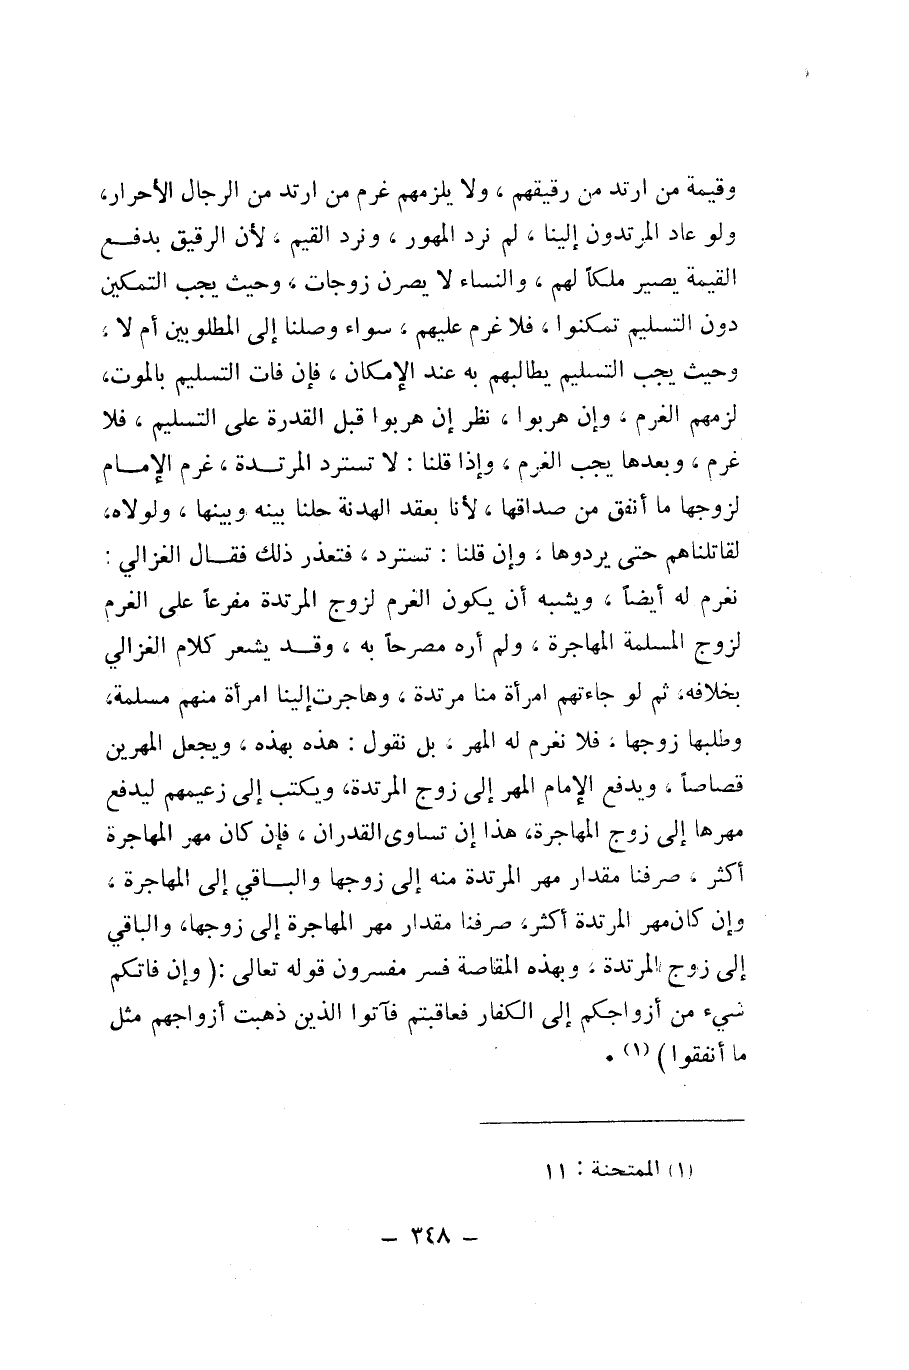 وقيمة من ارتد من رقيقهم ، ولا يلزمهم غرم من ارتد من الرجال الأحرار،
ولو عاد المرتدون إلينا ، لم نرد المهور ، ونرد القيم ، لأن الرقيق بدفــع
القيمة يصير ملكاً لهم ، والنساء لا يصرن زوجات ، وحيث يجب التمكين
دون التسليم تمكنوا ، فلا غرم عليهم ، سواء وصلنا إلى المطلوبين أم لا ،
وحيث يجب التسليم يطالبهم به عند الإمكان ، فإن فات التسليم بالموت،
لزمهم الغرم ، وإن هربوا ، نظر إن هربوا قبل القدرة على التسليم ، فلا
غرم ، وبعدها يجب الغرم ، وإذا قلنا : لا تسترد المرتــدة ، غرم الإمــام
لزوجها ما أنفق من صداقها ، لأنا بعقد الهدنة حلنا بينه وبينها ، ولولاه،
لقاتلناهم حتى يردوها ، وإن قلنا : تسترد ، فتعذر ذلك فقــال الغزالي :
نغرم له أيضاً ، ويشبه أن يكون الغرم لزوج المرتدة مفرعاً على الغرم
لزوج المسلمة المهاجرة ، ولم أره مصرحاً به ، وقــد يشعر كلام الغزالي
بخلافه، ثم لو جاءتهم امرأة منا مرتدة ، وهاجرت إلينا امرأة منهم مسلمة،
وطلبها زوجها ، فلا نغرم له المهر ، بل نقول : هذه بهذه ، ويجعل المهرين
قصاصاً ، ويدفع الإمام المهر إلى زوج المرتدة، ويكتب إلى زعيمهم ليدفع
مهرها إلى زوج المهاجرة، هذا إن تساوى القدران ، فإن كان مهر المهاجرة
أكثر ، صرفنا مقدار مهر المرتدة منه إلى زوجها والبــاقي إلى المهاجرة ،
وإن كان مهر المرتدة أكثر، صرفنا مقدار مهر المهاجرة إلى زوجها، والباقي
إلى زوج المرتدة ، وبهذه المقاصة فسر مفسرون قوله تعالى :( وإن فاتكم
شيء من أزواجكم إلى الكفار فعاقبتم فآتوا الذين ذهبت أزواجهم مثل
ما أنفقوا ) (١) .
(١) الممتحنة : ١١
– ٣٤٨ –